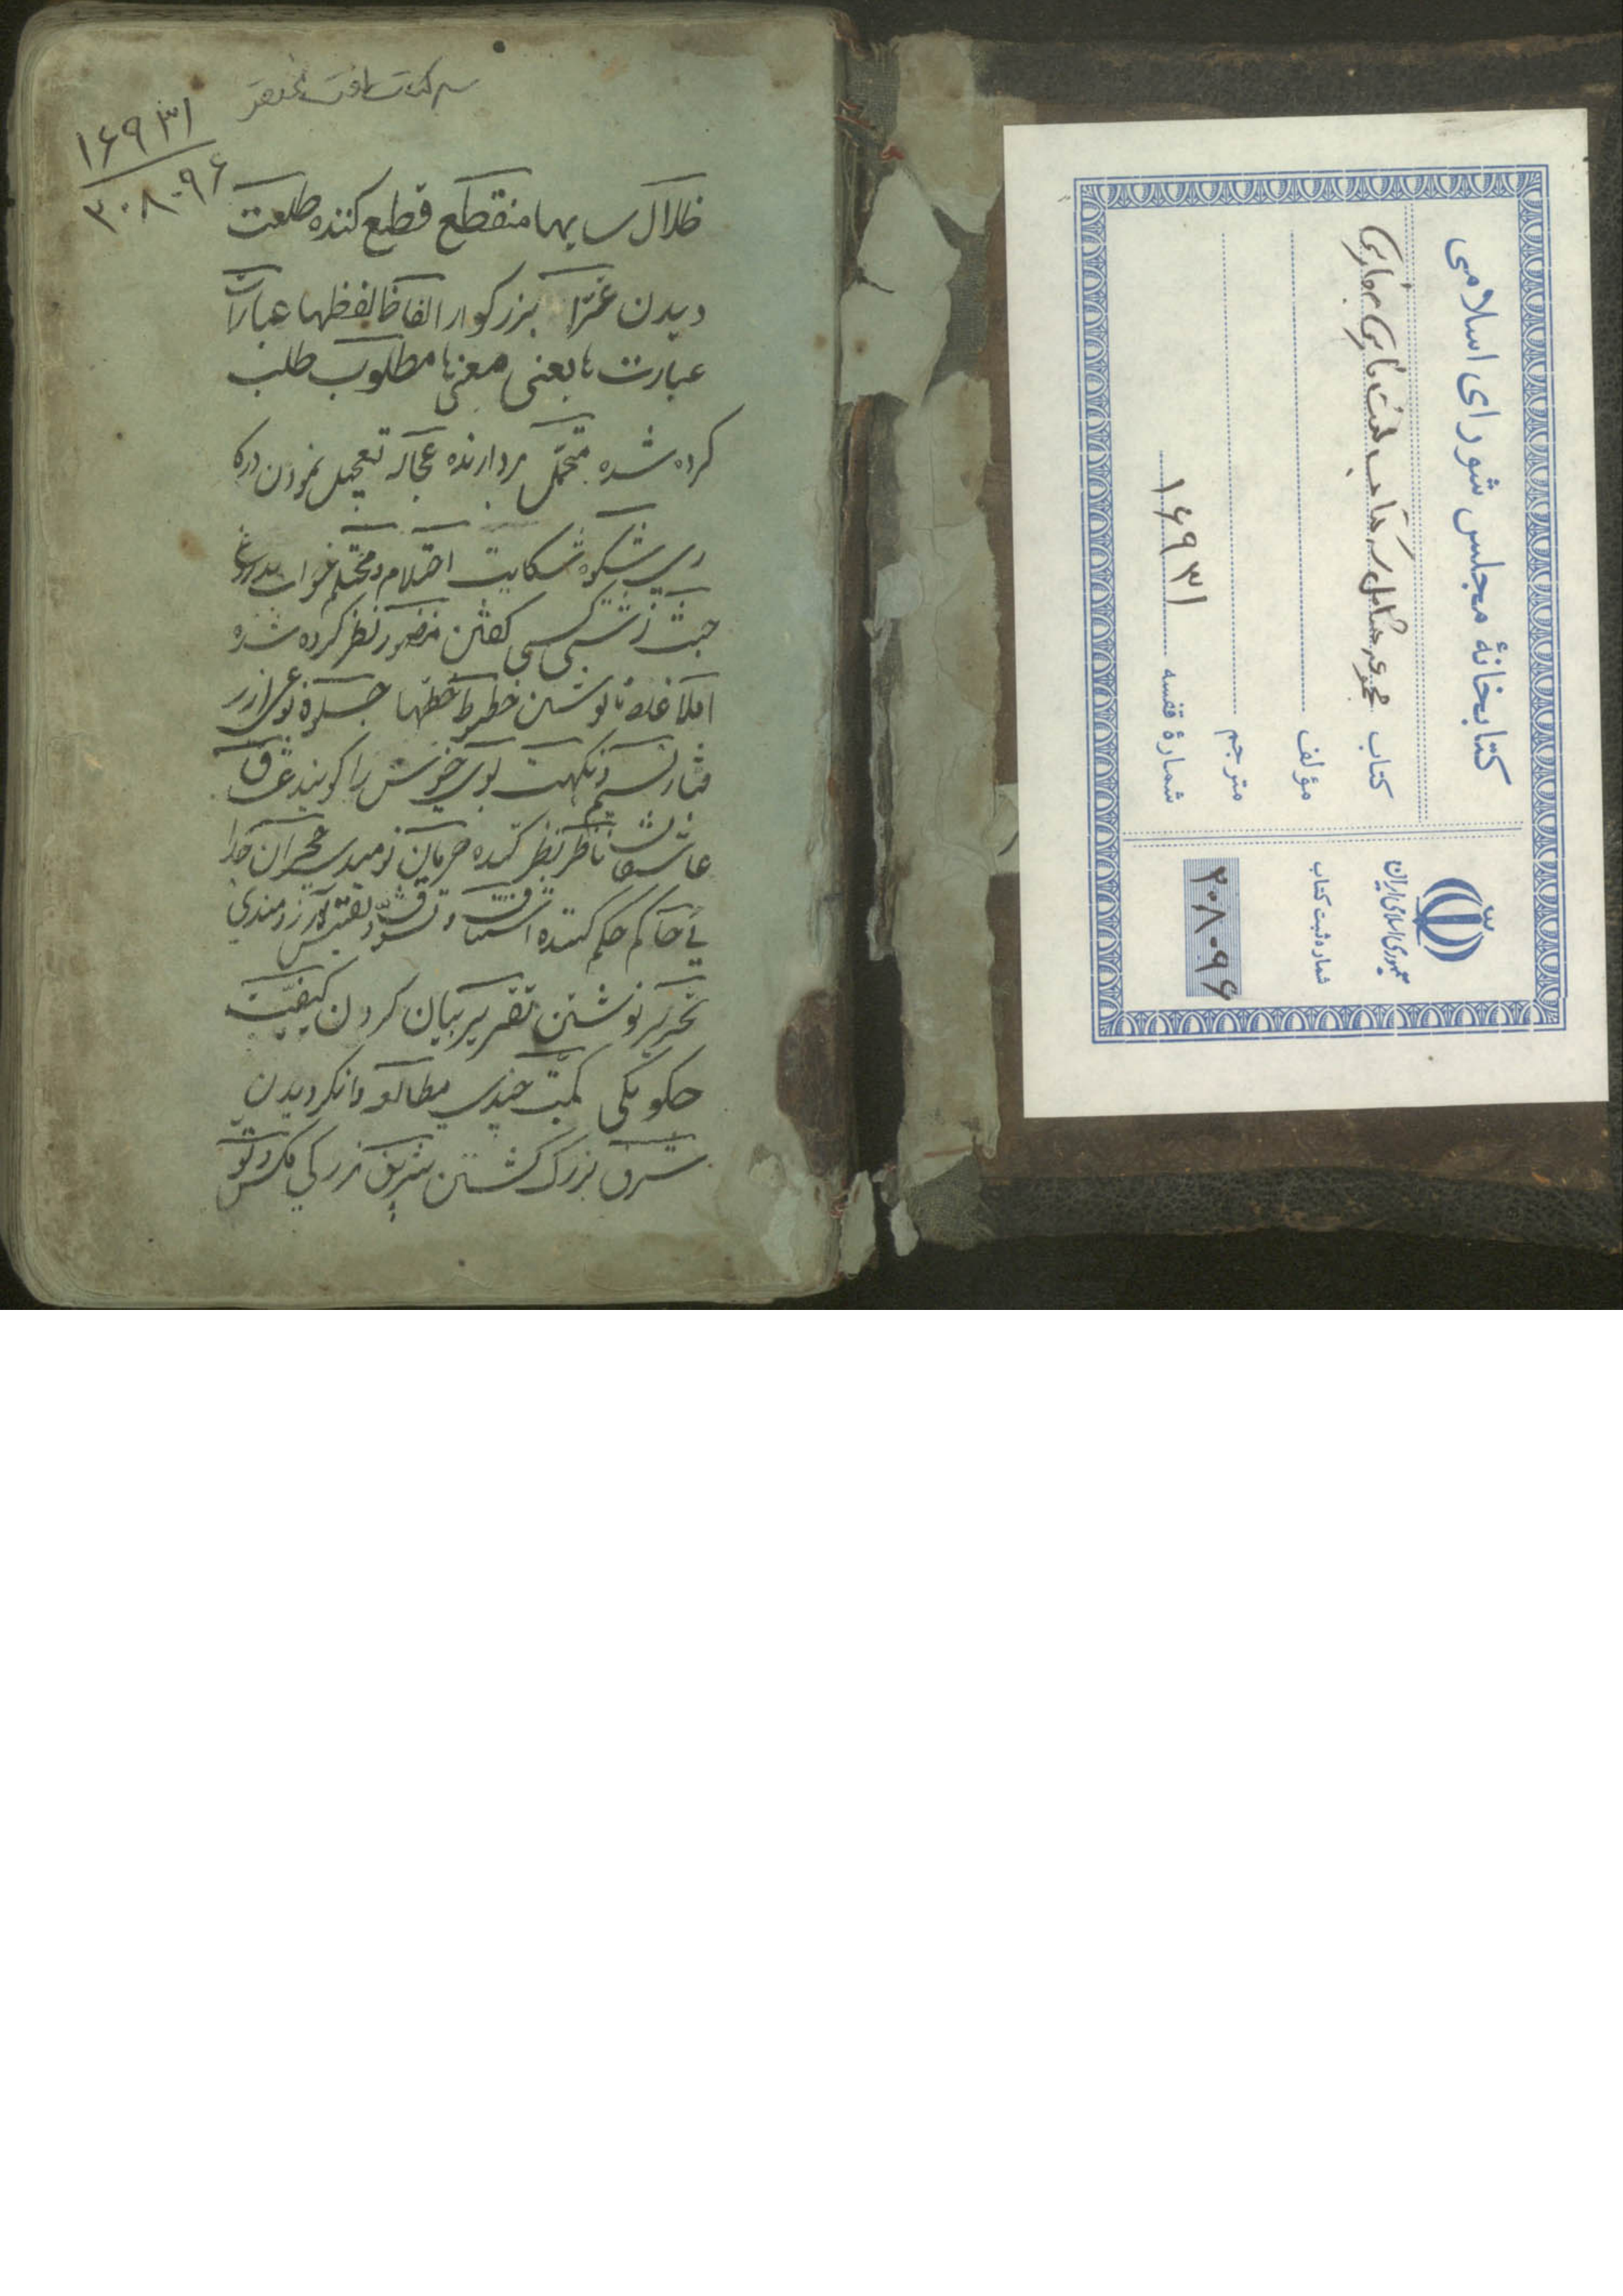 سه کتاب لغت مختصر
۱۶۹۳۱
۲۰۸۰۹۶
ظلال سایها منقطع قطع کننده طلعت
دیدن غرّا بزرکوار الفاظ لفظها عبارات
عبارت ها یعنی معنی ها مطلوب طلب
کرده شده متحمّل بردارنده عجاله تعجیل نمودن
شکوه شکایت احتلام و محتلم خواب
زشت کسی کفتن منظور نظر کرده شده
املا نوشتن خطوط خطها
نسیم و نکهت بوی خوش را کویند
ناظر نظر کننده حرمان نومیدی هجران جدا
یی حاکم حکم کننده اشتیاق و تشوّق آرزومندی
تحریر نوشتن تقریر بیان کردن کیفیّت
چکونکی کمیّت چندی مطالعه وانکریدن
شرف بزرک کشتن شریف بزرکی
کتابخانهٔ مجلس شورای اسلامی
کتاب مجموعه شامل سه کتاب لغت فارسی بفارسی
مؤلف
مترجم
شمارهٔ قفسه ۱۶۹۳۱
جمهوری اسلامی ایران
شماره ثبت کتاب
۲۰۸۰۹۶